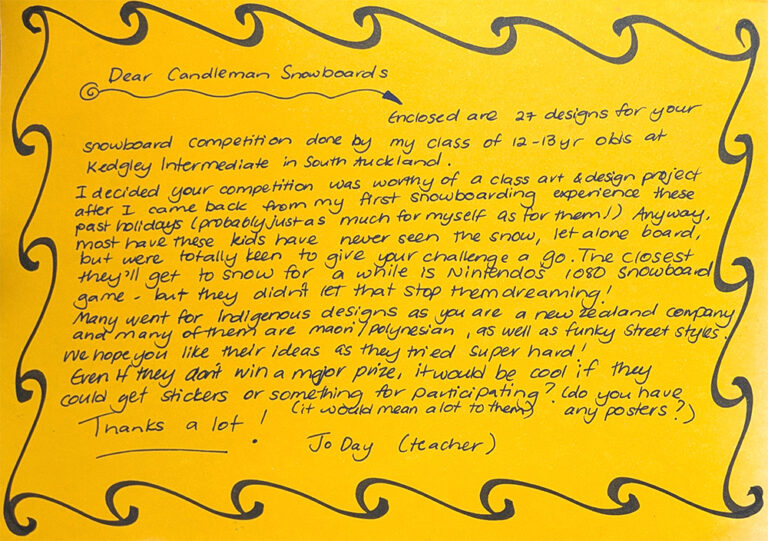 Dear Candleman Snowboards
Enclosed are 27 designs for your
snowboard competition done by my class of 12-13 yr olds at
Kedgley Intermediate in South Auckland.
I decided your competition was worthy of a class art & design project
after I came back from my first snowboarding experience these
past holidays (probably just as much for myself as for them!) Anyway,
most have these kids have never seen the snow, let alone board,
but were totally keen to give your challenge a go. The closest
they'll get to snow for a while is Nintendos 1080 Snowboard
game - but they didn't let that stop them dreaming!
Many went for Indigenous designs as you are a new zealand company
and many of them are maori/polynesian, as well as funky street styles.
We hope you like their ideas as they tried super hard!
Even if they don't win a major prize, it would be cool if they
could get stickers or something for participating? (do you have
(it would mean a lot to them) any posters?)
Thanks a lot!
Jo Day (teacher)